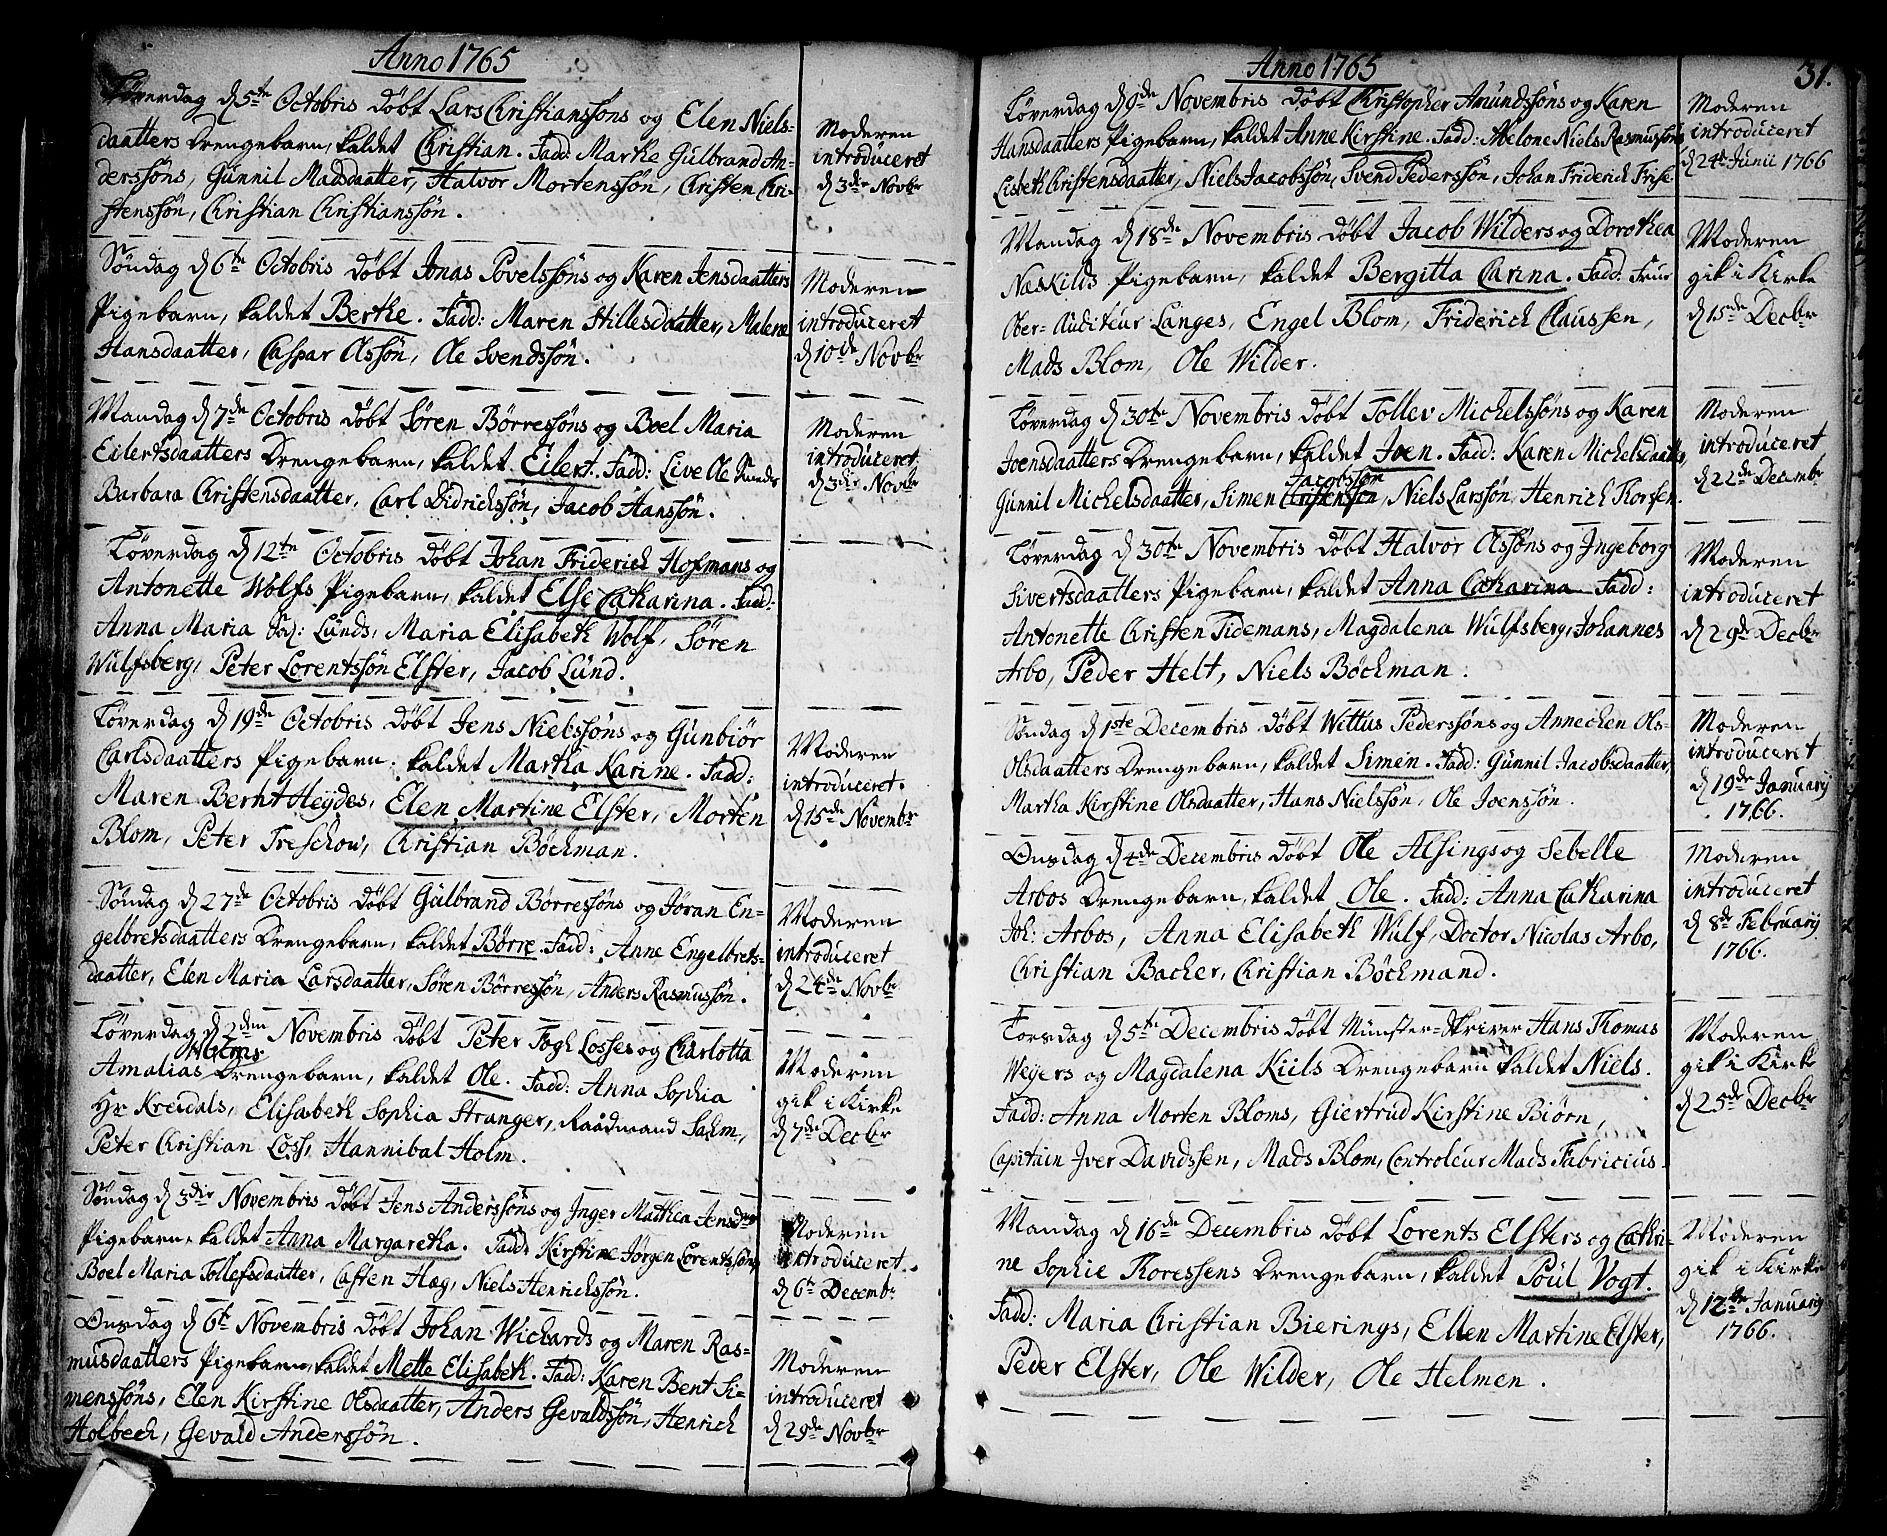 Anno 1765
Löverdag d 5te Octobris döbt Lars Christianssöns og Elen Niels-
daatters Drengebarn, kaldet Christian. Fadd: Marthe Gulbrand An-
derssöns, Gunnil Madsdaatter, Halvor Mortenssön, Christen Chri-
stenssön, Christian Christianssön.
Moderen
introduceret
d 3die Novbr
Söndag d 6te Octobris döbt Jonas Povelssöns og Karen Jensdaatters
Pigebarn, kaldet Berthe. Fadd: Maren Hillesdaatter, Malene
Hansdaatter, Caspar Olssön, Ole Svendssön.
Moderen
introduceret
d 10de Novbr
Mandag d 7de Octobris döbt Sören Börressöns og Boel Maria
Eilertsdaatters Drengebarn, kaldet Eilert. Fadd: Live Ole
Barbara Christensdaatter, Carl Didrichssön, Jacob Hanssön.
Moderen
introduceret
d 3die Novbr
Löverdag d 12te Octobris döbt Johan Friderich Hofmans og
Antonette Wolfs Pigebarn, kaldet Else Catharina. Fadd:
Anna Maria Lunds, Maria Elisabeth Wolf, Sören
Wulfsberg, Peter Lorentssön Elster, Jacob Lund.
Löverdag d 19de Octobris döbt Jens Nielssöns og Gunbiör
Carlsdaatters Pigebarn, kaldet Martha Karine. Fadd:
Maren Bernt Heydes, Elen Martine Elster, Morten
Blom, Peter Treschow, Christian Böchman.
Moderen
introduceret
d 15de Novembr
Söndag d 27de Octobris döbt Gulbrand Börressöns og Jöran En-
gelbretsdaatters Drengebarn, kaldet Börre. Fadd: Anne Engelbrets-
daatter, Elen Maria Larsdaatter, Sören Börressön, Anders Rasmussön.
Moderen
introduceret
d 24de Novbr
Löverdag d 2den Novembris döbt Peter Fogh Losses og Charlotta
Holms
Amalias Drengebarn, kaldet Ole. Fadd: Anna Sophia
Hr Kreidals, Elisabeth Sophia Stranger, Raadmand Sahm,
Peter Christian Loss, Hannibal Holm.
Moderen
gik i Kirke
d 7de Decbr
Söndag d 3die Novembris döbt Jens Anderssöns og Inger Mathea Jensd
Pigebarn, kaldet Anna Margaretha. Fadd: Kirstine Jörgen Lorentssöns
Boel Maria Tollefsdaatter, Casten Hæg, Niels Henrichssön.
Moderen
introduceret
d 6te Decembr
Onsdag d 6te Novembris döbt Johan Wichards og Maren Ras-
musdaatters Pigebarn, kaldet Mette Elisabeth. Fadd: Karen Bent Si-
menssöns, Elen Kirstine Olsdaatter, Anders Gevaldssön, Henrich
Holbech, Gevald Anderssön.
Moderen
introduceret
d 29de Novbr
Anno 1765
31.
Löverdag d 9de Novembris döbt Christopher Amundssöns og Karen
Hansdaatters Pigebarn, kaldet Anne Kirstine. Fadd: Abelone Niels Rasmussöns
Lisbeth Christensdaatter, Niels Jacobssön, Svend Pederssön, Johan Friderich Frise.
Moderen
introduceret
d 24de Junii 1766
Mandag d 18de Novembris döbt Jacob Wilders og Dorothea
Næskilds Pigebarn, kaldet Bergitta Carina. Fadd: Frue
Ober-Auditeur Langes, Engel Blom, Friderich Claussen,
Mads Blom, Ole Wilder.
Moderen
gik i Kirke
d 15de Decbr
Löverdag d 30te Novembris döbt Tollev Michelssöns og Karen
Joensdaatters Drengebarn, kaldet Joen. Fadd: Karen Michelsdaatter,
Jacobssön
Gunnil Michelsdaatter, Simen Christenssön, Niels Larssön, Henrich Thorsen.
Moderen
introduceret
d 22de Decembr
Löverdag d 30te Novembris döbt Halvor Olssöns og Ingeborg
Sivertsdaatters Pigebarn, kaldet Anna Catharina Fadd:
Antonette Christen Tidemans, Magdalena Wulfsberg, Johannes
Arbo, Peder Helt, Niels Böchman.
Moderen
introduceret
d 29de Decbr
Söndag d 1ste Decembris döbt Wittus Pederssöns og Annechen Ols-
Olsdaatters Drengebarn, kaldet Simen. Fadd: Gunnil Jacobsdaatter,
Martha Kirstine Olsdaatter, Hans Nielssön, Ole Joenssön.
Moderen
introduceret
d 19de Januarij
1766.
Onsdag d 4de Decembris döbt Ole Alsings og Sebelle
Arbos Drengebarn, kaldet Ole. Fadd: Anna Catharina
Joh: Arbos, Anna Elisabeth Wulf, Doctor Nicolas Arbo,
Christian Bacher, Christian Böchmand.
Moderen
introduceret
d 8de Februarij
1766.
Torsdag d 5te Decembris döbt Munster-Skriver Hans Thomas
Weyers og Magdalena Kiils Drengebarn kaldet Niels.
Fadd: Anna Morten Bloms, Giertrud Kirstine Biörn,
Capitain Iver Davidssen, Mads Blom, Controleur Mads Fabricius.
Moderen
gik i Kirke
d 25de Decbr
Mandag d 16de Decembris döbt Lorents Elsters og Cathri-
ne Sophie Thoressens Drengebarn, kaldet Poul Vogt.
Fadd: Maria Christian Bierings, Ellen Martine Elster,
Peder Elster, Ole Wilder, Ole Helmen.
Moderen
gik i Kirke
d 12te Januarij
1766.